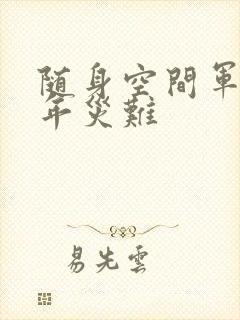 随身空間軍
年災難
易先雲